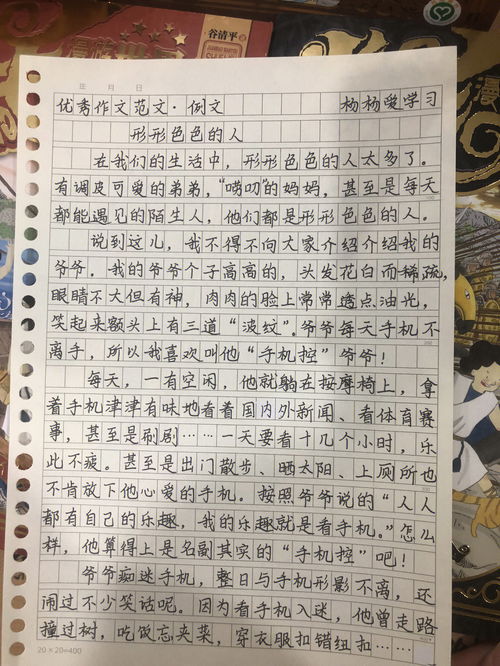 谷清平
年 月 日
优秀作文范文·例文 杨杨爱学习
形形色色的人
在我们的生活中，形形色色的人太多了。
有调皮可爱的弟弟，“唠叨”的妈妈，甚至是每天
都能遇见的陌生人，他们都是形形色色的人。
说到这儿，我不得不向大家介绍介绍我的
爷爷。我的爷爷个子高高的，头发花白而稀疏，
眼睛不大但有神，肉肉的脸上常常透点油光，
笑起来额头上有三道“波纹”。爷爷每天手机不
离手，所以我喜欢叫他“手机控”爷爷！
每天，一有空闲，他就躺在按摩椅上，拿
着手机津津有味地看着国内外新闻、看体育赛
事，甚至是刷剧……一天要看十几个小时，乐
此不疲。甚至是出门散步、晒太阳、上厕所也
不肯放下他心爱的手机。按照爷爷说的“人人
都有自己的乐趣，我的乐趣就是看手机。”怎么
样，他算得上是名副其实的“手机控”吧！
爷爷痴迷手机，整日与手机形影不离，还
闹过不少笑话呢。因为看手机入迷，他曾走路
撞过树，吃饭忘夹菜，穿衣服扣错纽扣……
20×20=400